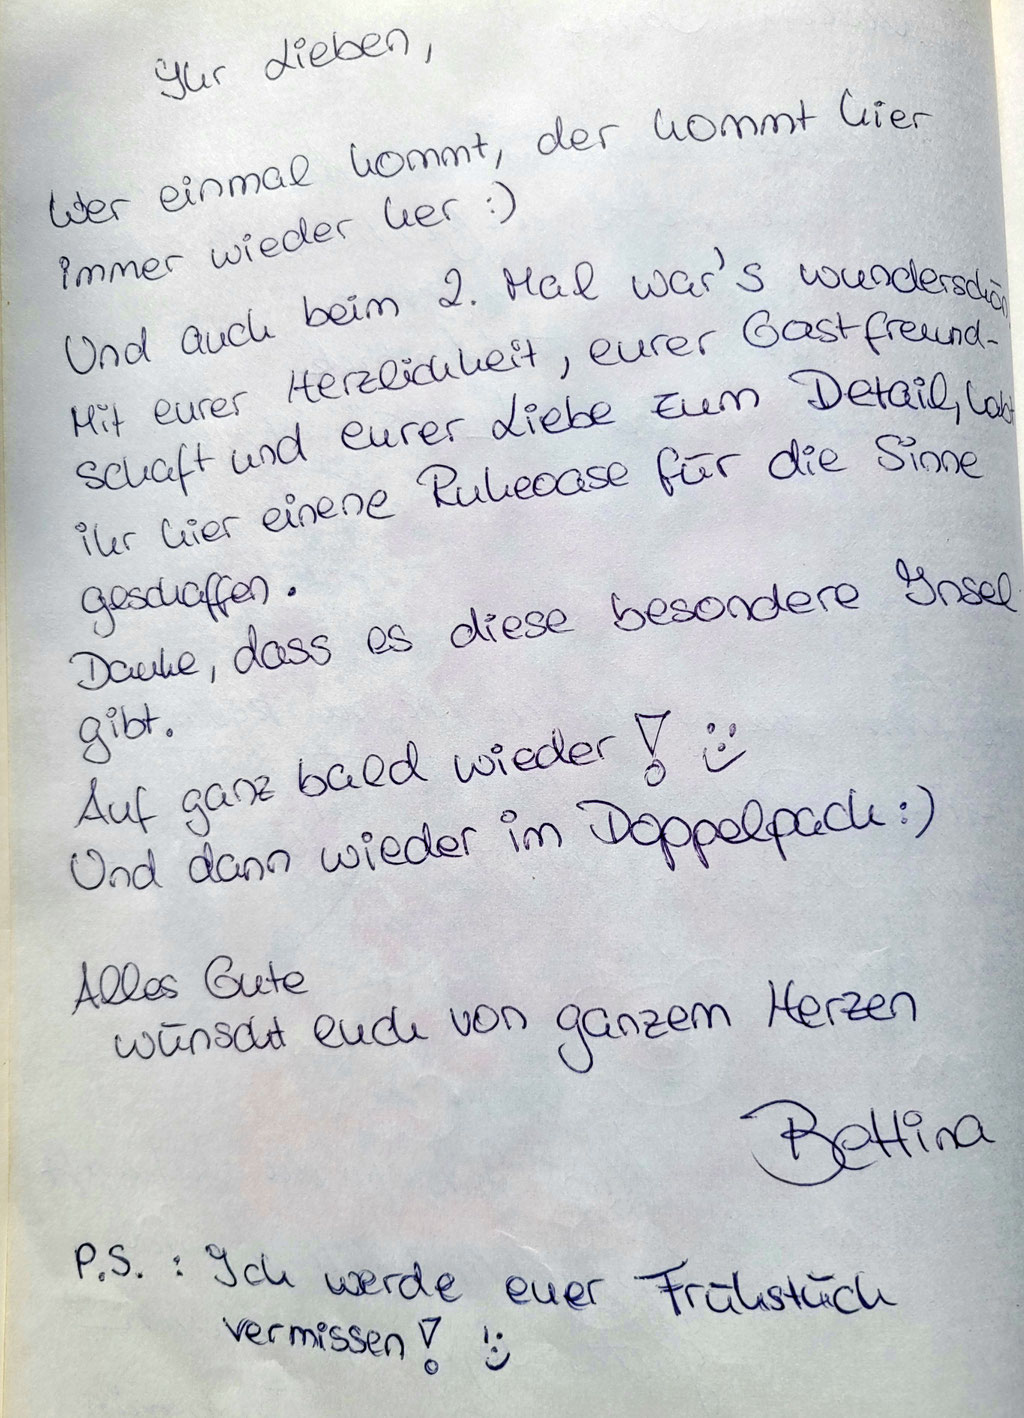 Ihr Lieben,
Wer einmal kommt, der kommt hier
immer wieder her :)
Und auch beim 2. Mal war's wunderschön
Mit eurer Herzlichkeit, eurer Gastfreund-
schaft und eurer Liebe zum Detail, habt
ihr hier einene Ruheoase für die Sinne
geschaffen.
Danke, dass es diese besondere Insel
gibt.
Auf ganz bald wieder! :)
Und dann wieder im Doppelpack :)
Alles Gute
wünscht euch von ganzem Herzen
Bettina
P.S.: Ich werde euer Frühstück
vermissen! :)